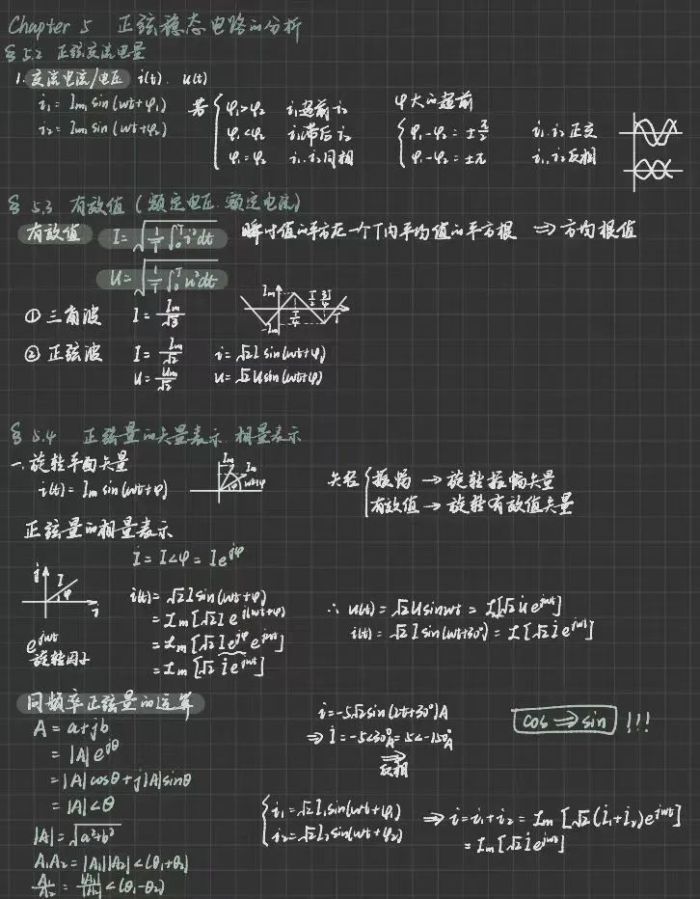 Chapter 5 正弦稳态电路的分析
§5.2 正弦交流电量
1. 交流电流/电压 i(t). u(t)
i₁ = Im sin(ωt+φ₁)
i₂ = Im sin(ωt+φ₂)
若 { φ₁>φ₂ i₁超前i₂
φ₁<φ₂ i₁滞后i₂
φ₁=φ₂ i₁.i₂同相
φ大的超前
{ φ₁-φ₂=±π/2 i₁.i₂正交
φ₁-φ₂=±π i₁.i₂反相
§5.3 有效值(额定电压.额定电流)
有效值 I=√(1/T ∫₀ᵀ i²dt) 瞬时值的平方在一个T内平均值的平方根 ⇒ 方均根值
U=√(1/T ∫₀ᵀ u²dt)
① 三角波 I=Im/√3
Im T/2 3T/4
-Im T/4 T
② 正弦波 I=Im/√2 i=√2I sin(ωt+φ)
U=Um/√2 u=√2U sin(ωt+φ)
§5.4 正弦量的矢量表示.相量表示
一. 旋转平面矢量
i(t)=Im sin(ωt+φ)
Im Im ωt+φ φ
矢径 { 振幅 → 旋转振幅矢量
有效值 → 旋转有效值矢量
正弦量的相量表示
İ=I∠φ=Ie^{jφ}
j İ φ 1
e^{jωt}
旋转因子
i(t)=√2I sin(ωt+φ)
=Im[√2I e^{j(ωt+φ)}]
=Im[√2I e^{jφ} e^{jωt}]
=Im[√2 İ e^{jωt}]
∴ u(t)=√2U sinωt = I[√2 U̇ e^{jωt}]
i(t)=√2I sin(ωt+30°)=I[√2 İ e^{jωt}]
同频率正弦量的运算
A=a+jb
=|A|e^{jθ}
=|A|cosθ+j|A|sinθ
=|A|∠θ
|A|=√(a²+b²)
A₁A₂=|A₁||A₂|∠(θ₁+θ₂)
A₁/A₂=|A₁|/|A₂|∠(θ₁-θ₂)
i=-5√2sin(2t+30°)A
⇒ İ=-5∠30°A=5∠-150°A
⇒
反相
cos ⇒ sin !!!
{ i₁=√2I₁sin(ωt+φ₁)
i₂=√2I₂sin(ωt+φ₂)
⇒ i=i₁+i₂=Im[√2(İ₁+İ₂)e^{jωt}]
=Im[√2 İ e^{jωt}]